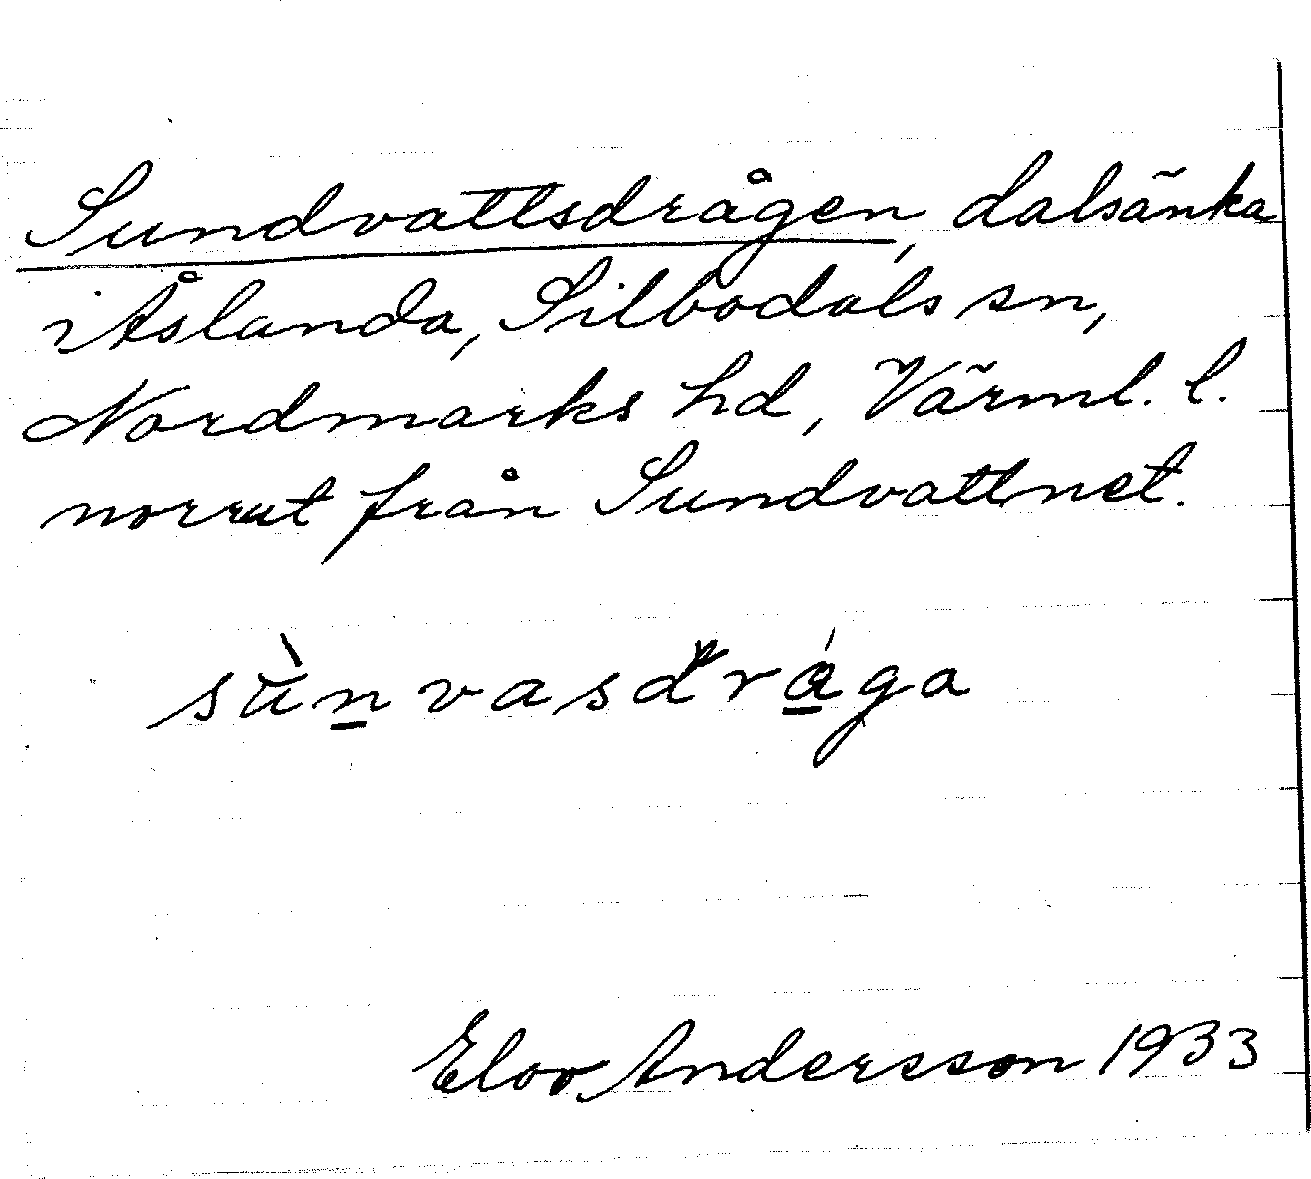 Sundvattsdrågen, dalsänka
i Åslanda, Silbodals sn,
Nordmarks hd, Värml. l.
norrut från Sundvattnet.
sùnvasdrága
Elov Andersson 1933